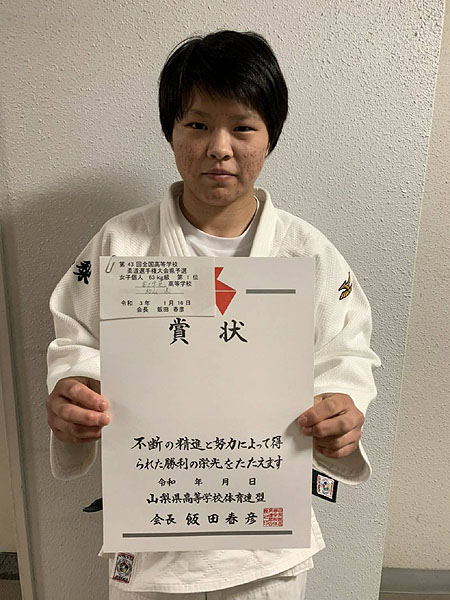 第43回全国高等学校
柔道選手権大会県予選
女子個人 63kg級 第1位
高等学校
令和 3年 1月16日
会長 飯田 春彦
賞状
不断の精進と努力によって得
られた勝利の栄光をたたえます
令和 年 月 日
山梨県高等学校体育連盟
会長 飯田春彦